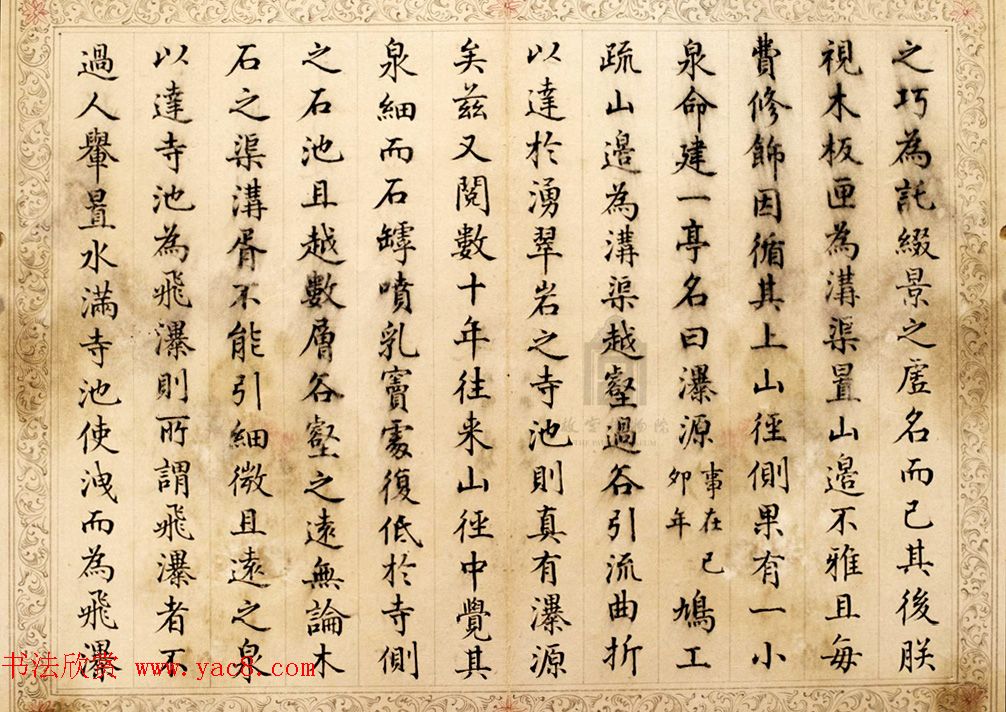 之巧為託綴景之虛名而已其後朕
視木板匣為溝渠置山邊不雅且每
費修飾因循其上山徑側果有一小
泉命建一亭名曰瀑源事在己卯年鳩工
疏山邊為溝渠越壑過谷引流曲折
以達於湧翠岩之寺池則真有瀑源
矣茲又閱數十年往来山徑中覺其
泉細而石罅噴乳竇處復低於寺側
之石池且越數層谷壑之遠無論木
石之渠溝胥不能引細微且遠之泉
以達寺池為飛瀑則所謂飛瀑者不
過人轝置水滿寺池使洩而為飛瀑
书法欣赏 www.yac8.com